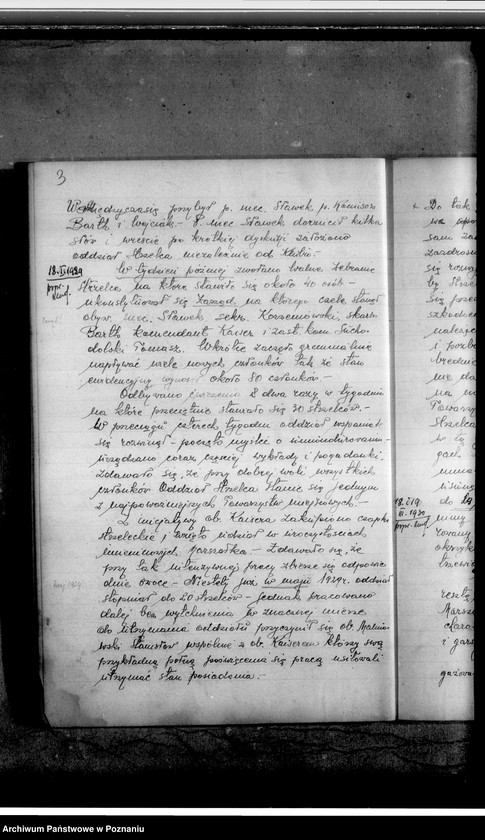 3
W międzyczasie przybył p. mec. Sławek p. Komisarz
Bartk i Wojciak. - P. mec Sławek dorzucił kilka
słów i wreście po krótkiej dyskusji założono
oddział Strzelca niezależnie od Klubu. -
18. II 1929
W tydzień później zwołano walne zebranie
Strzelca na które stawiło się około 40 osób -
ukonstytuował się Zarząd na którego czele stanął
obyw. mec. Sławek, sekr. Korzeniowski, skarb.
Bartk komendant Kaiser i zast. kom. Sucho-
dolski Tomasz. Wkrótce zaczęło gremialnie
napływać wiele nowych członków tak że stan
ewidencyjny wynosił około 80 członków. -
Odbywano ćwiczenia 2 dwa razy w tygodniu
na które przeciętnie stawało się 30 strzelców. -
W przeciągu czterech tygodni oddział wspaniale
się rozwinął - poczęto myśleć o umundurowaniu -
urządzano coraz częściej wykłady i pogadanki.
Zdawało się, że przy dobrej woli wszystkich
członków Oddział Strzelca stanie się jednym
z najpoważniejszych Towarzystw miejscowych. -
Z inicjatywy ob. Kaisera zakupiono czapki
strzeleckie i wzięto udział w uroczystościach
imieninowych Marszałka. - Zdawało się, że
przy tak intensywnej pracy zbierze się odpowie-
dnie owoce - Niestety już w maju 1929r. oddział
maj 1929
stopniał do 20 strzelców - jednak pracowano
dalej bez wytchnienia w znacznej mierze
do utrzymania oddziału przyczynił się ob. Malinow-
ski Stanisław wspólnie z ob. Kaiserem którzy swą
przykładną pełną poświęcenia się pracą usiłowali
utrzymać stan posiadania. -
Do tak
na
sam
zazdrości
się
by Strze
się prze
szkodze
należy
i pozb
nie da
na
Towarzy
Strzelca
w tę
gach
uma
do
18.
III. 1930
rowany
okrzyk
Marsz
i gar
Archiwum Państwowe w Poznaniu